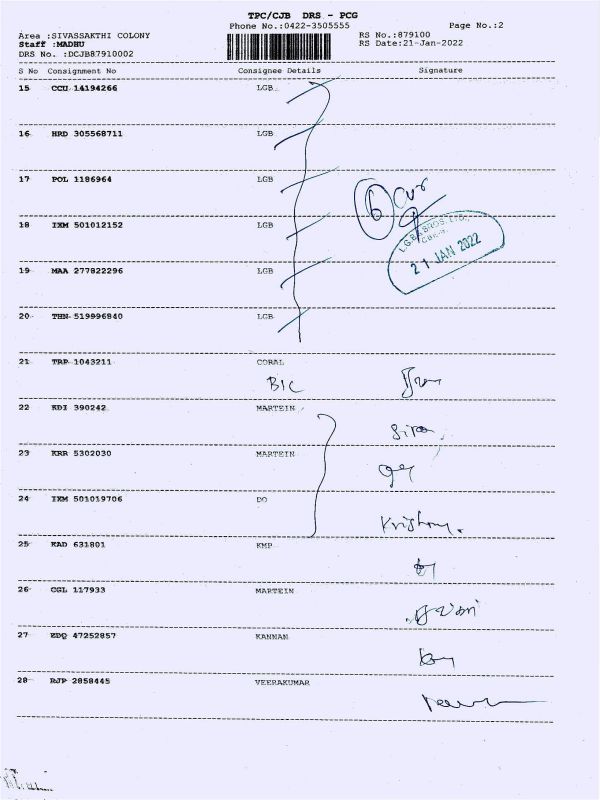 TPC/CJB DRS - PCG
Phone No.:0422-3505555
Page No.:2
Area :SIVASSAKTHI COLONY
RS No.:879100
Staff :MADHU
RS Date:21-Jan-2022
DRS No. :DCJB87910002
S No Consignment No Consignee Details Signature
15 CCU 14194266 LGB
16 HRD 305568711 LGB
17 POL 1186964 LGB
6
18 IXM 501012152 LGB
21 JAN 2022
19 MAA 277822296 LGB
20 THN 519996840 LGB
21 TRP 1043211 CORAL
22 KDI 390242 MARTEIN
23 KRR 5302030 MARTEIN
24 IXM 501019706 DO
25 KAD 631801 KMP
26 CGL 117933 MARTEIN
27 EDQ 47252857 KANNAN
28 RJP 2858445 VEERAKUMAR